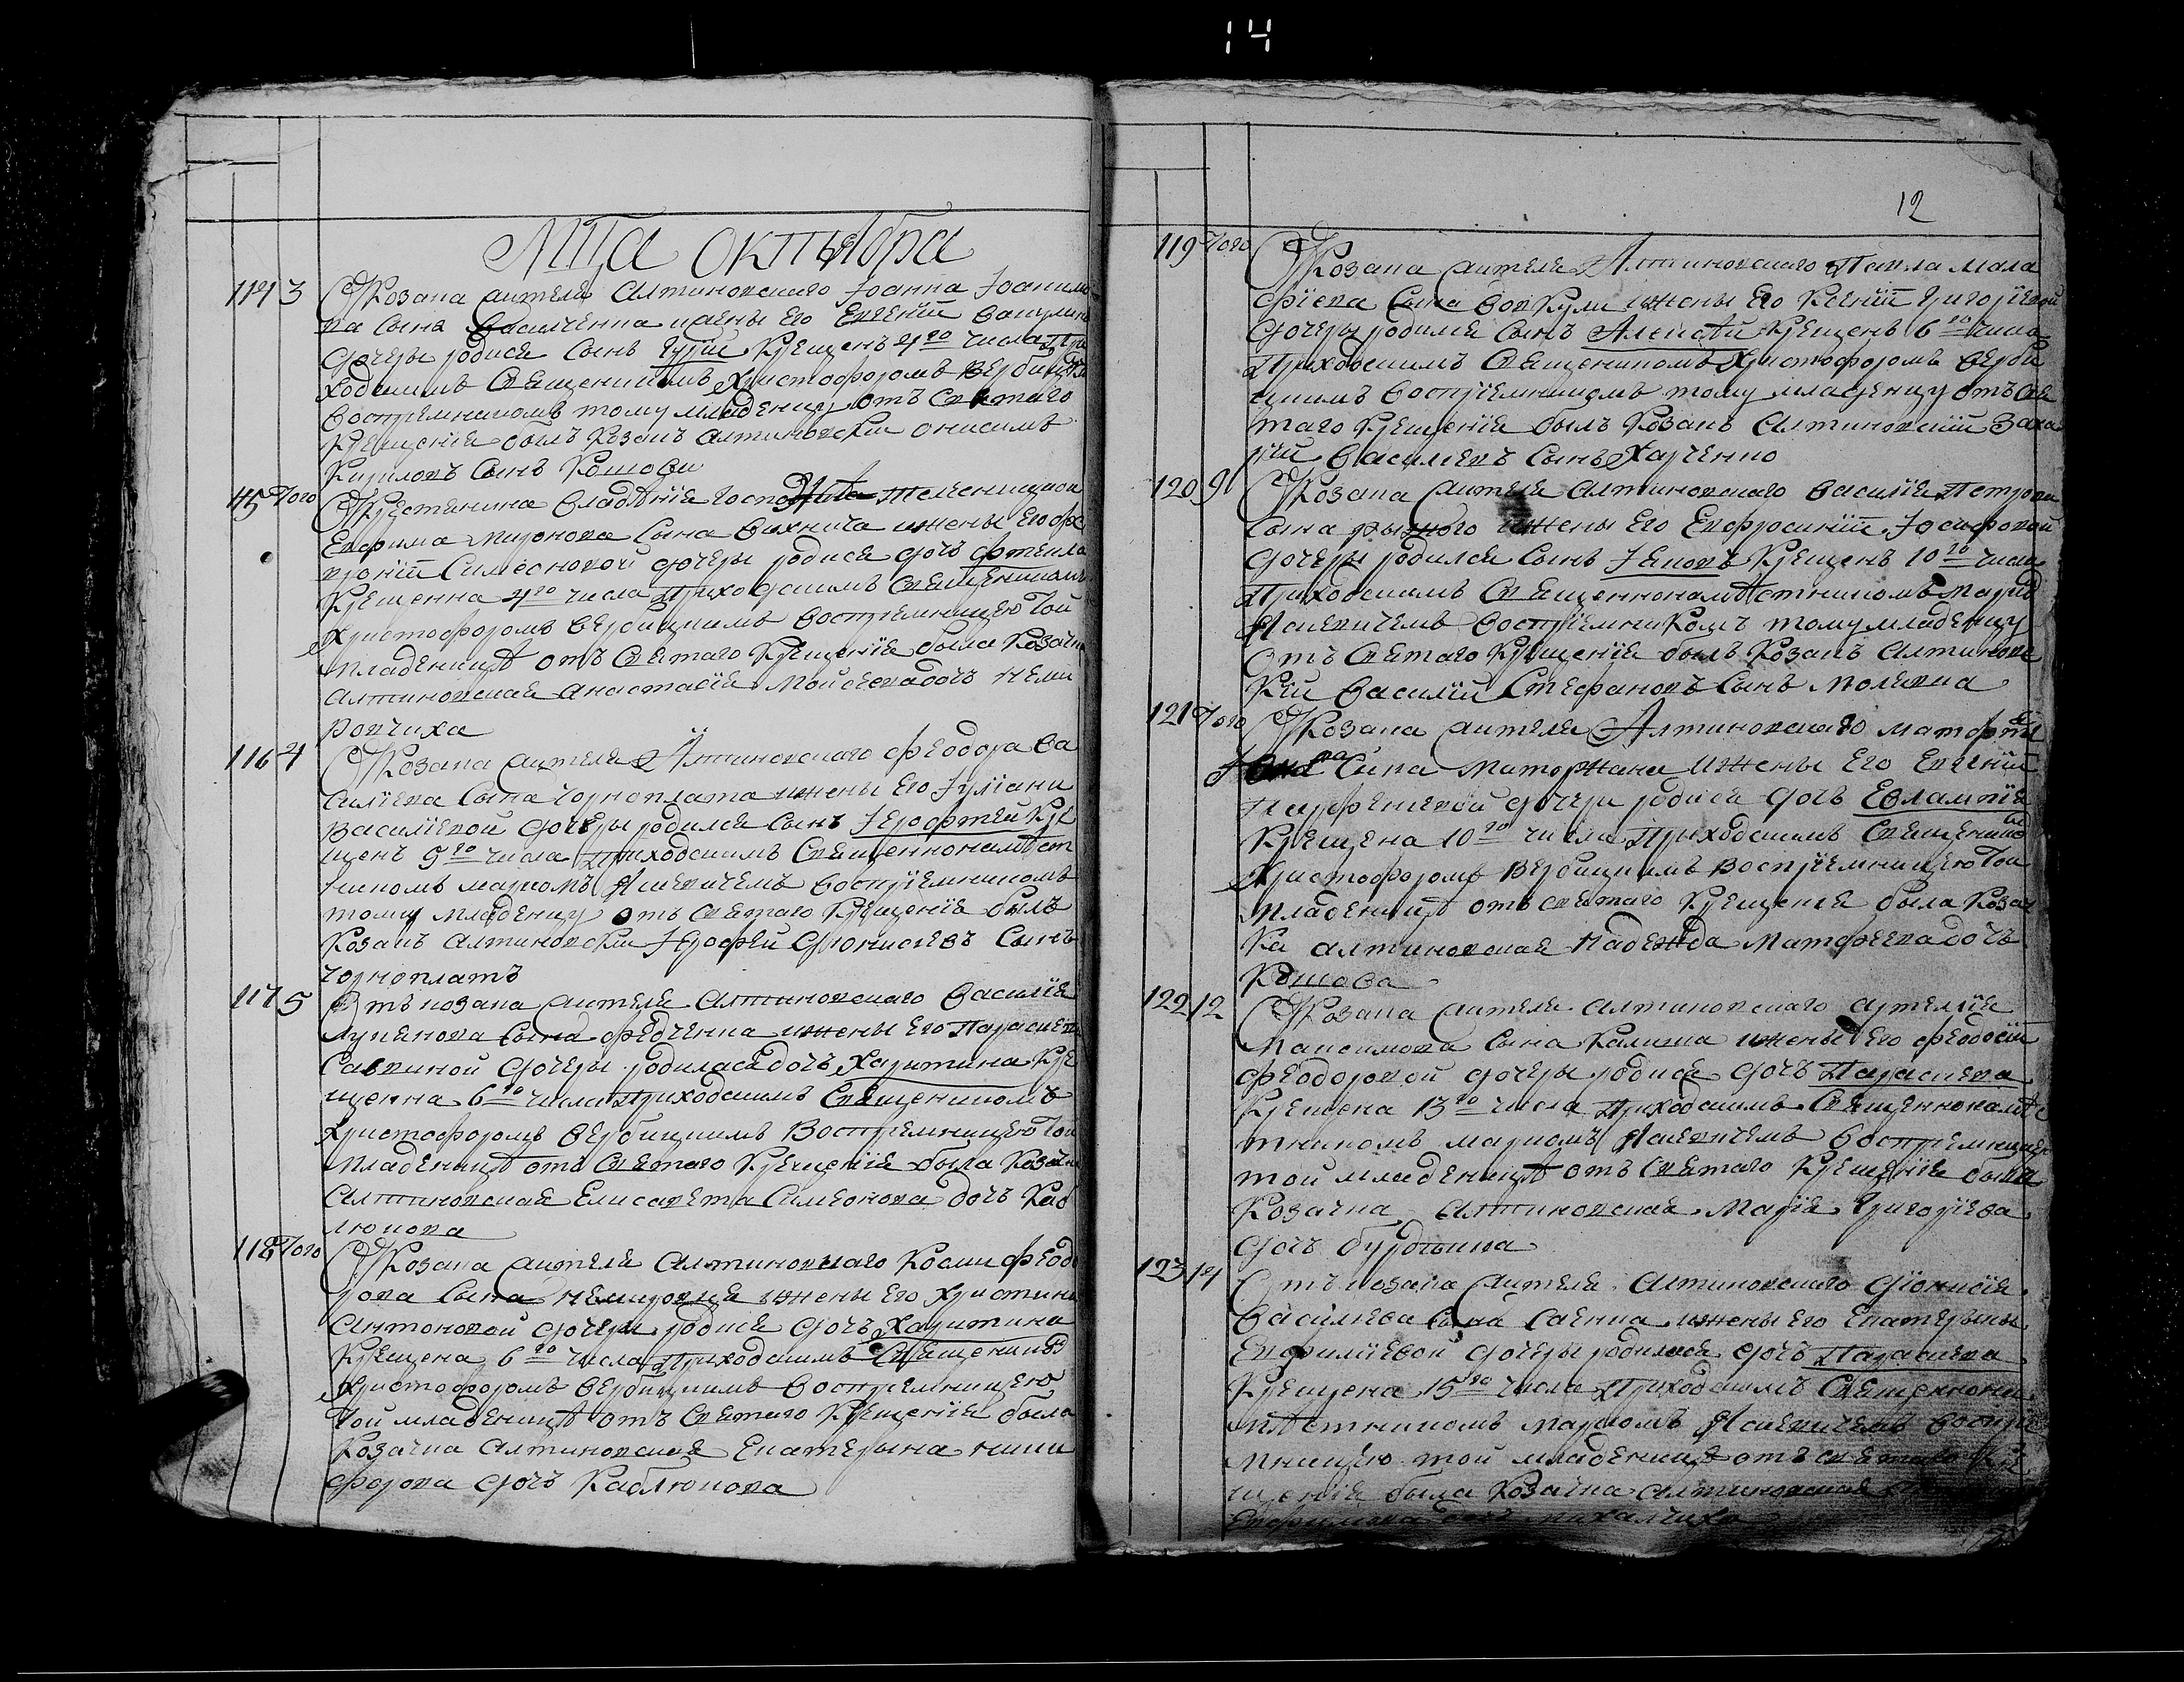 14
Мца октября
114 3 От Козака жителя Алтиновского Іоанна Іоанимо
ва сына жены его Евгеніи
дочеры родися сынъ Гурій крещенъ 4го числа При
ходскимъ священникомъ Христофоромъ Вербицким
воспріемникомъ тому младенцу отъ святаго
крещенія былъ козакъ алтиновскій онисимъ
Кириловъ сынъ Кошови
115 Того От Крестянина владѣнія господина
Евфима миронова сына жены его фе
вроніи Симеоновой дочеры родися дочь фтекла
крещенна 4го числа Приходскимъ священникомъ
Христофоромъ вербицкимъ воспріемницею той
младеницѣ отъ святаго крещенія была козачка
алтиновская анастасія Мойсеева дочь неми
ровчиха
116 4 От Козака жителя Алтиновского феодора ва
силіева сына чорноплата жены его Іуліани
василіевой дочеры родился сынъ Іерофтей кре
щенъ 9го числа Приходскимъ священнонамѣст
никомъ маркомъ Яневичемъ воспріемникомъ
тому младенцу отъ святаго крещенія былъ
козакъ алтиновскій Іерофей діонисіевъ сынъ
чорноплатъ
117 5 Отъ козака жителя Алтиновского василія
Лукянова сына федченка жены его Параскеви
Саввиной дочеры родилася дочь Харитина кре
щенна 6го числа Приходскимъ священникомъ
Христофоромъ вербицкимъ воспріемницею той
младеницѣ отъ святаго крещенія была козачка
Алтиновская Елисавета Симеонова дочь Каб
люкова
118 Того От Козака жителя Алтиновского Космы феодо
рова сына немировця жены его Христини
Антоновой дочеры родися дочь Харитина
крещена 6го числа Приходскимъ священником
Христофоромъ вербицкимъ воспріемницею
той младеницѣ отъ святаго крещенія была
козачка алтиновская Екатерына ники
форова дочь Каблюкова
12
119 Того От Козака жителя Алтиновского Павла мала
фіева сына Вовкули жены его Ксеніи Григоріевой
дочеры родился сынъ Алексѣй крещенъ 6го числа
Приходскимъ священникомъ Христофоромъ верби
цкимъ воспріемникомъ тому младенцу отъ свя
таго крещенія былъ козакъ Алтиновскій Заха
рій василіевъ сынъ Харченко
120 9 От Козака жителя Алтиновского василія Петрова
сына рызкого жены его Евфросиніи Іосифовой
дочеры родился сынъ Іяковъ крещенъ 10го числа
Приходскимъ священнонамѣстникомъ марко
Яневичемъ воспріемникомъ тому младенцу
отъ святаго крещенія былъ козакъ Алтиновс
кій василій Стефановъ сынъ молявка
121 Того От Козака жителя Алтиновского матфѣя
сына маторжана жены его Евгеніи
Парфеніевой дочери родися дочь Евлампія
крещена 10го числа Приходскимъ священнико
Христофоромъ вербицкимъ воспріемницею той
младеницѣ отъ святаго крещенія была козач
ка алтиновская надежда матфеева дочь
Кошова
122 12 От Козака жителя Алтиновского артемія
Максимова сына Калиша жены его феодосіи
феодоровой дочеры родися дочь Параскева
крещена 13го числа Приходскимъ священнонамѣс
тникомъ маркомъ Яневичемъ воспріемницею
той младеницѣ отъ святаго крещенія была
козачка Алтиновская Марія Григоріева
дочь
123 14 Отъ козака жителя Алтиновского діонисія
василіева сына Саенка жены его Екатерыны
Евфиміевой дочеры родилася дочь Параскева
крещена 15го числа Приходскимъ священнона
мѣстникомъ маркомъ Яневичемъ воспріе
мницею той младеницѣ отъ святаго кре
щенія была козачка алтиновская
дочь михалчиха